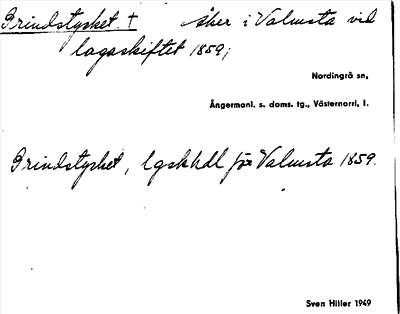 Grindstycket. † åker i Valmsta vid
lagaskiftet 1859;
Nordingrå sn,
Ångermanl. s. doms. tg., Västernorrl, l.
Grindstycket, lgskhdl för Valmsta 1859.
Sven Hiller 1949